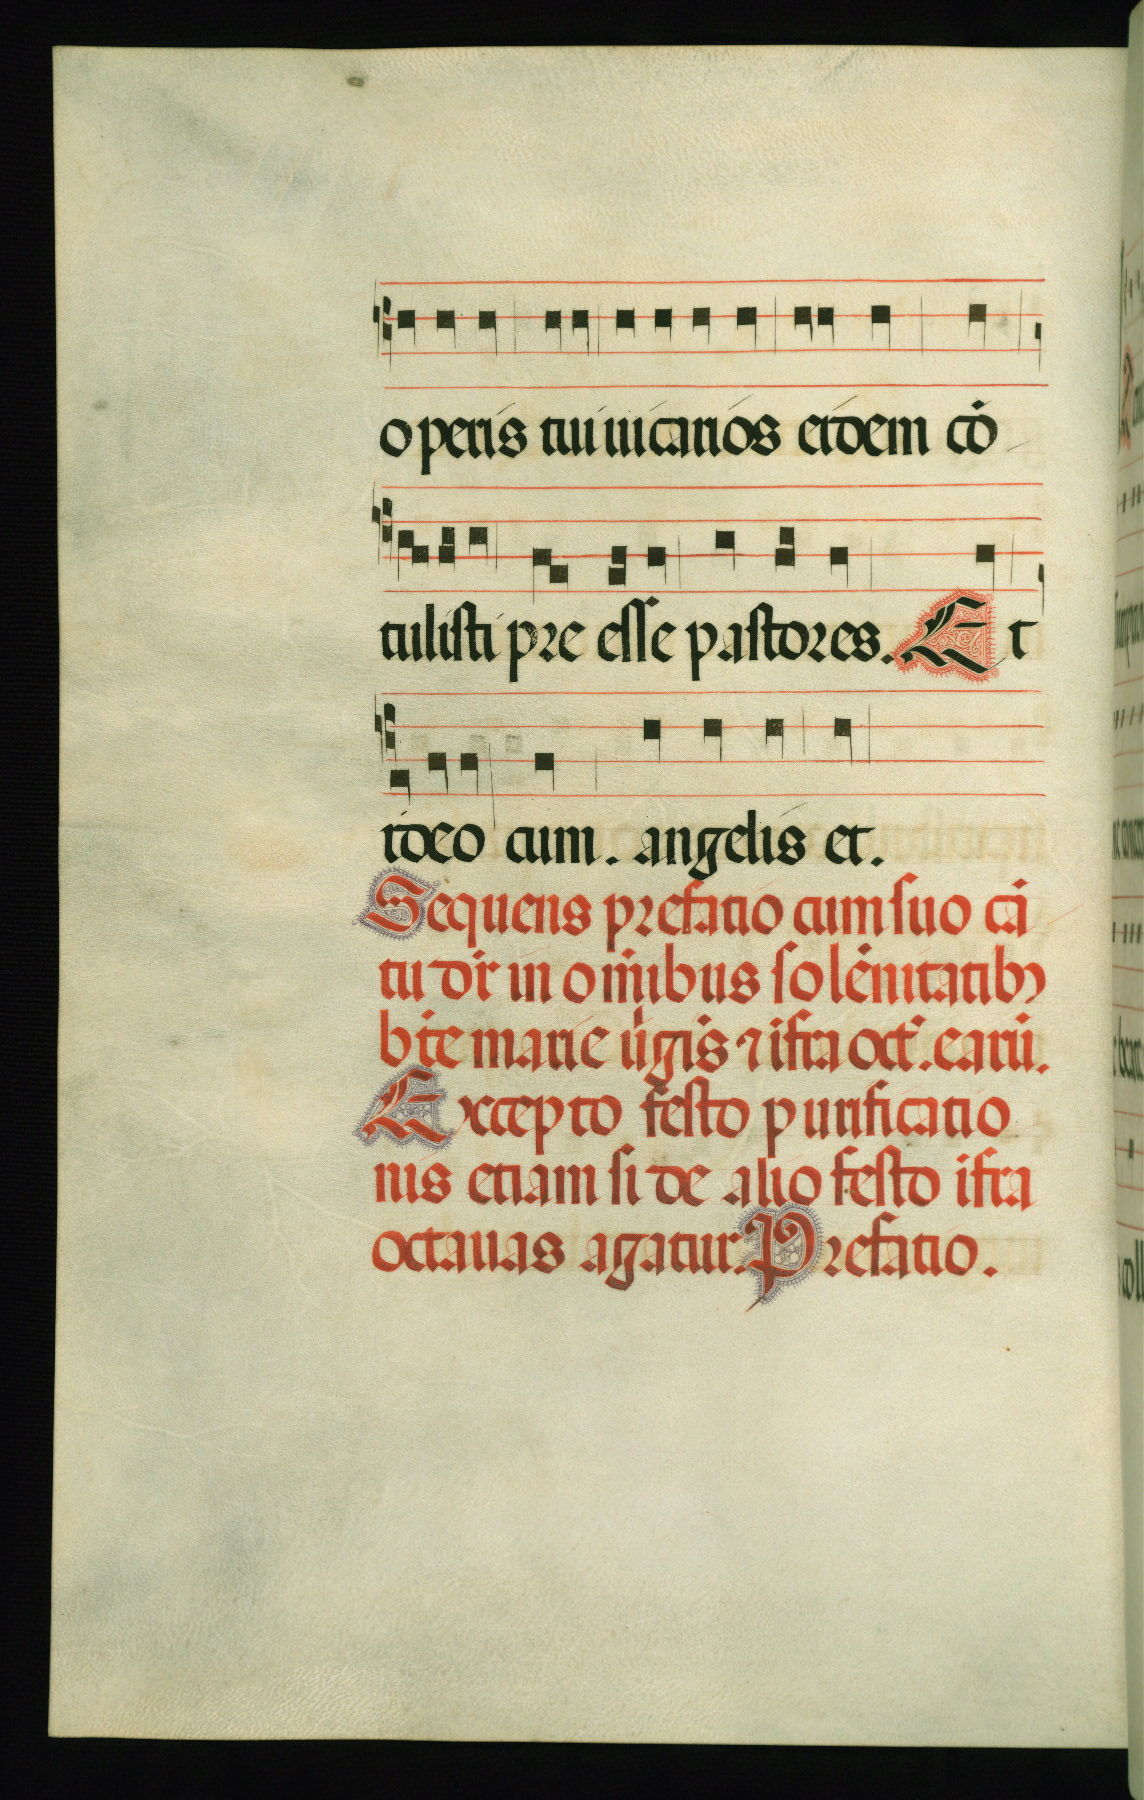 operis tui uicarios eidem cō
tulisti pre esse pastores. Et
ideo cum. angelis et.
Sequens prefatio cum suo cā
tu dr̄ in om̄ibus solēnitatibꝫ
bt̄e marie ūgis ⁊ ifra oct̄. earū.
Excepto festo purificatio
nis etiam si de alio festo ifra
octauas agatur. Prefatio.